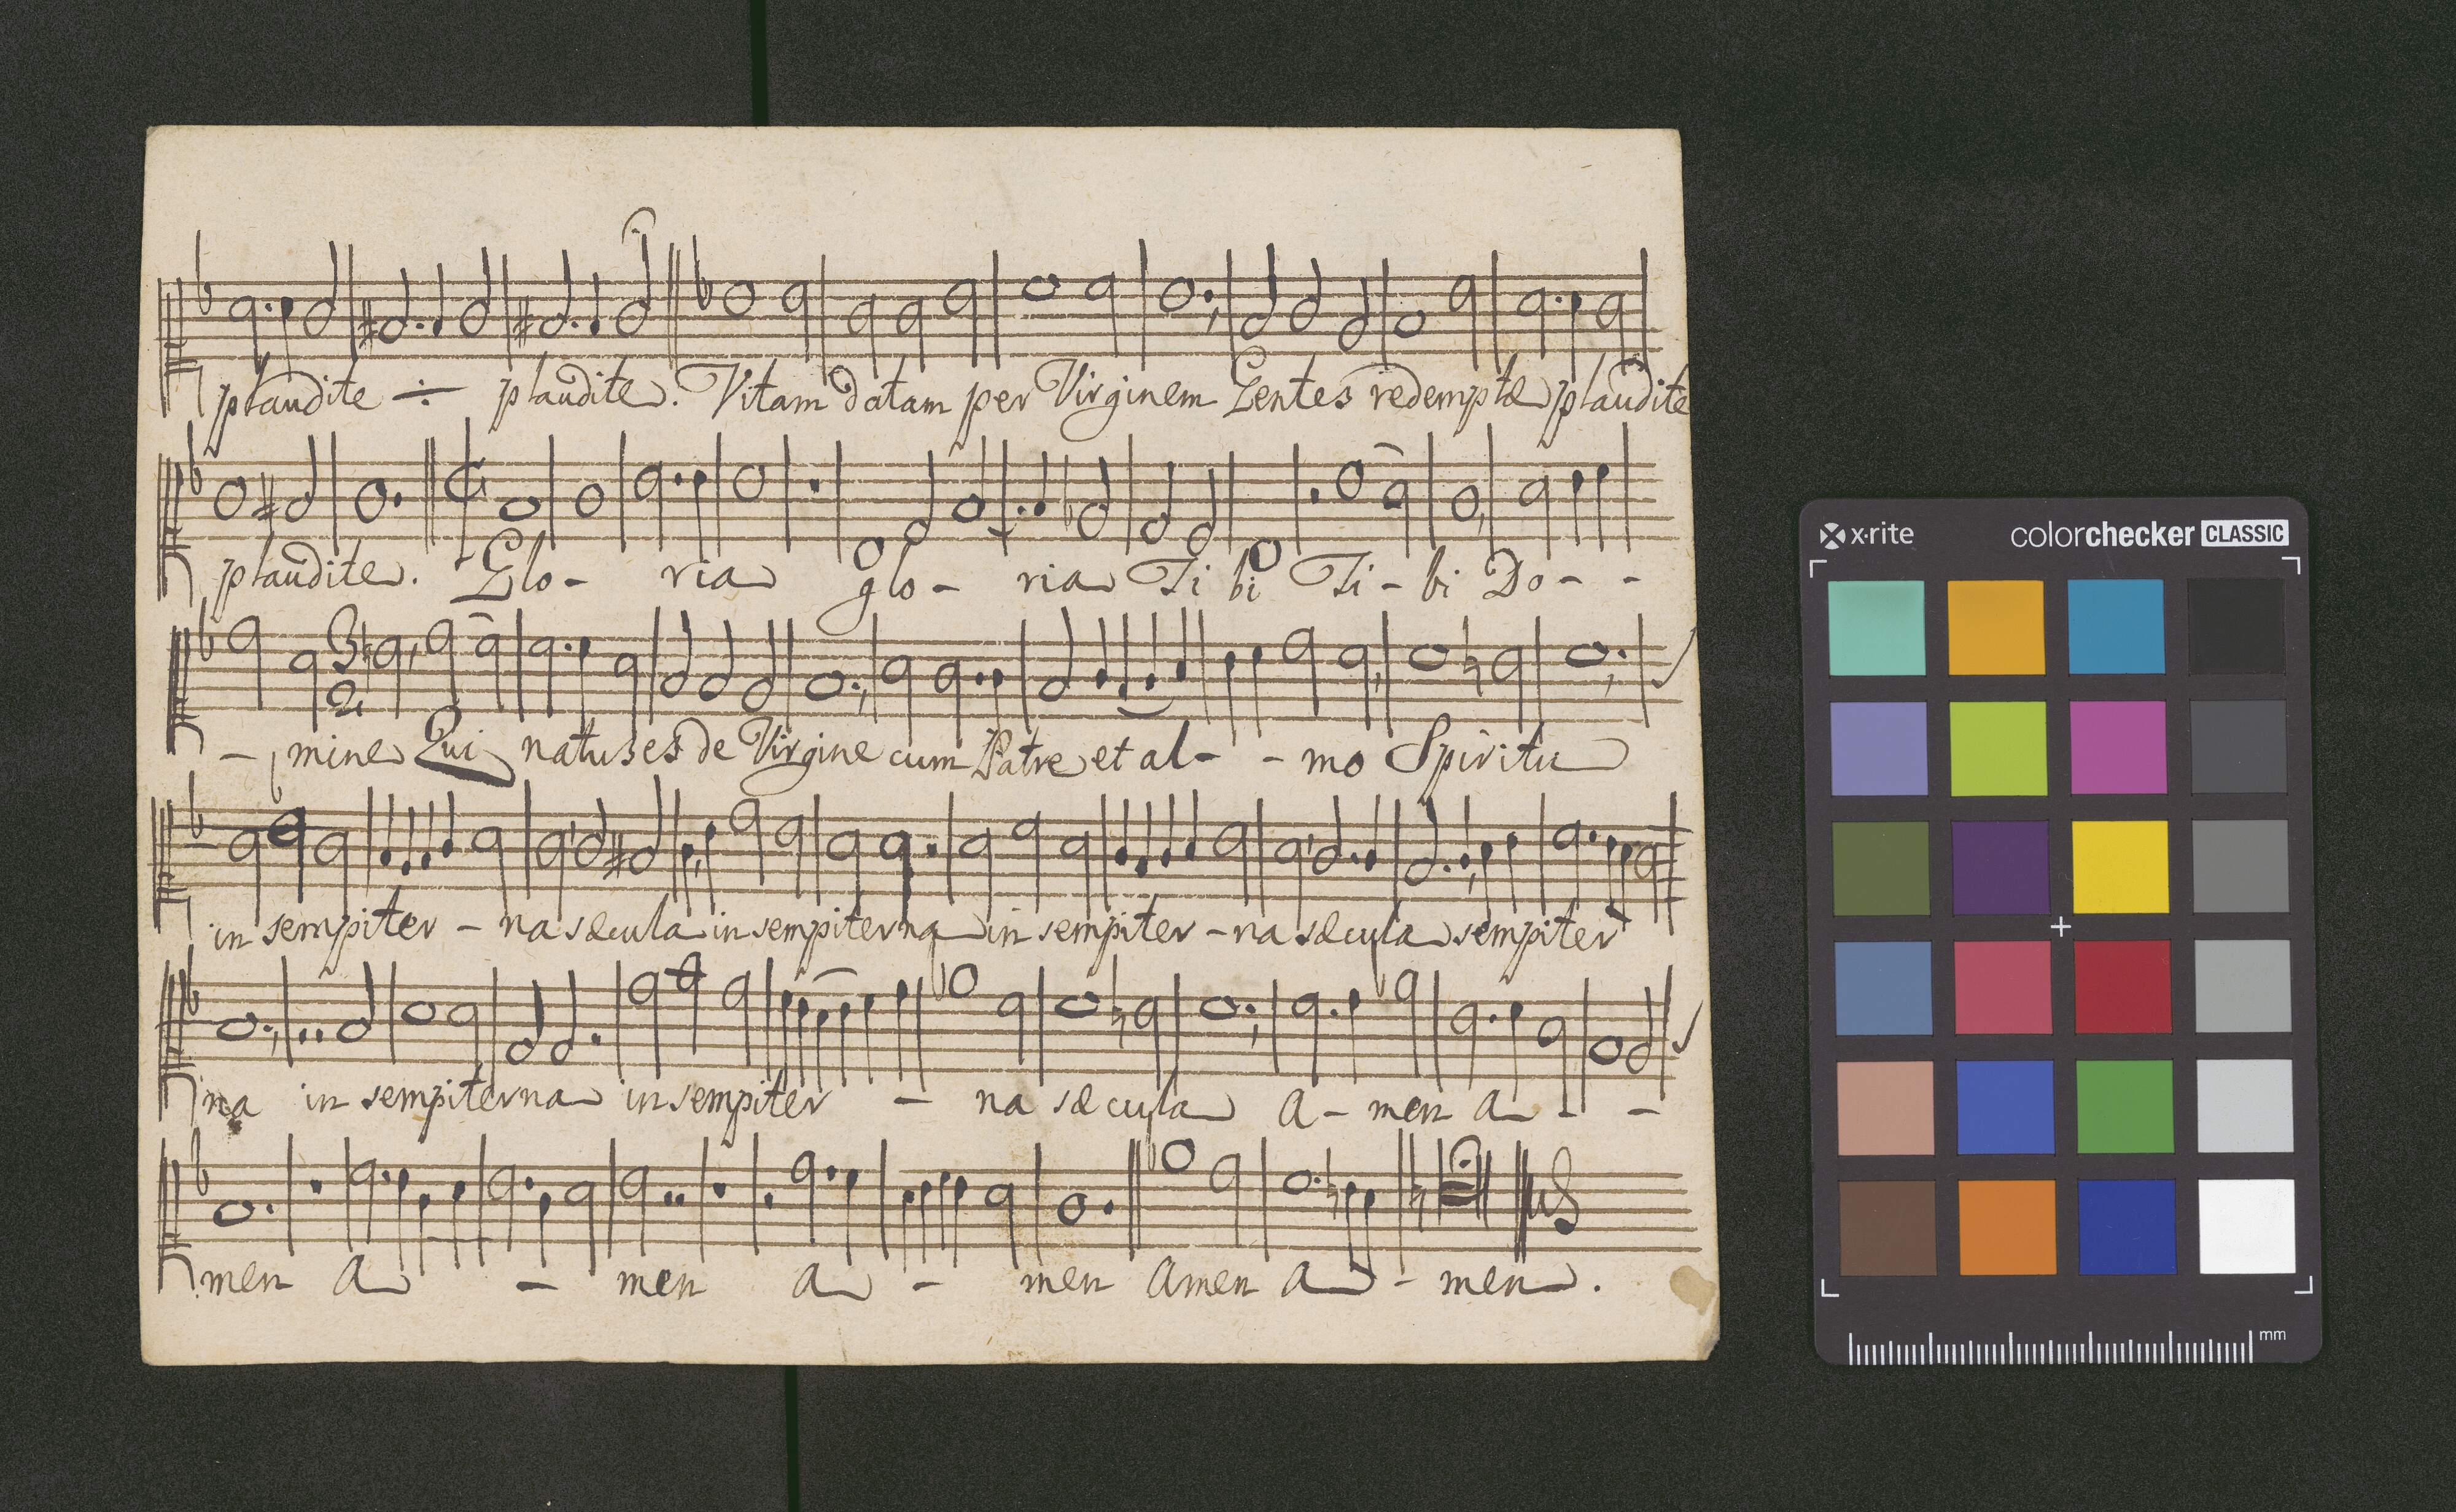 plaudite ÷ plaudite. Vitam datam per Virginem Gentes redemptæ plaudite
plaudite. Glo - ria glo - ria Ti bi Ti - bi Do - -
- mine Qui natus es de Virgine cum Patre et al - - mo Spiritu
in sempiter - na sæcula in sempiterna in sempiter - na sæcula sempiter
na in sempiterna in sempiter - na sæcula a - men a - -
men a - men a - men amen a - men.
x·rite colorchecker CLASSIC
mm